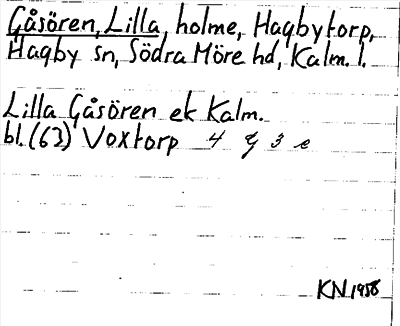 Gåsören, Lilla, holme, Hagbytorp,
Hagby sn, Södra Möre hd, Kalm. l.
Lilla Gåsören ek Kalm.
bl. (63) Voxtorp 4 G 3 e
KN 1958